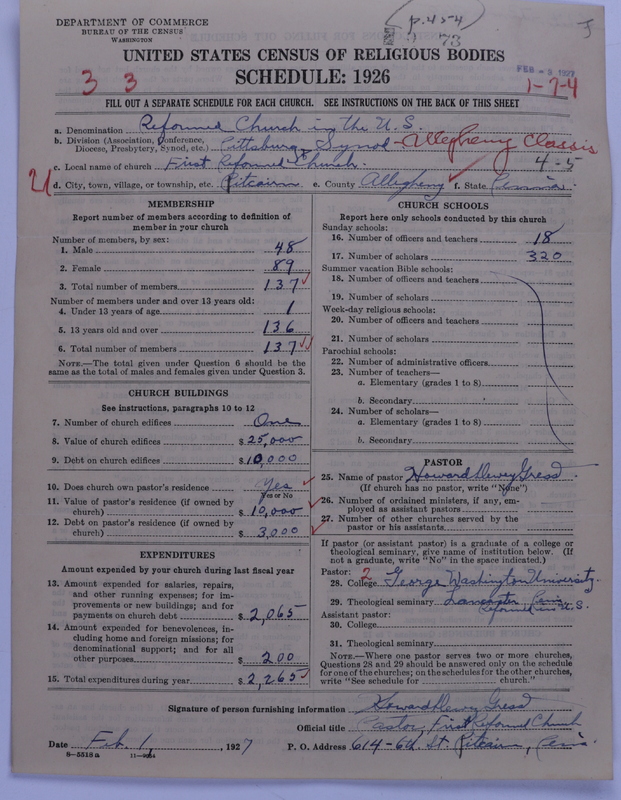 DEPARTMENT OF COMMERCE
BUREAU OF THE CENSUS
WASHINGTON
p. 454
73
UNITED STATES CENSUS OF RELIGIOUS BODIES
SCHEDULE: 1926
3 3
FEB - 3 1927
1-7-4
FILL OUT A SEPARATE SCHEDULE FOR EACH CHURCH. SEE INSTRUCTIONS ON THE BACK OF THIS SHEET
a. Denomination Reformed Church in the U.S.
b. Division (Association, Conference, Diocese, Presbytery, Synod, etc.) Pittsburg Synod - Allegheny Classis
c. Local name of church First Reformed Church. 4-5
d. City, town, village, or township, etc. Pitcairn e. County Allegheny f. State Penna.
MEMBERSHIP
Report number of members according to definition of
member in your church
Number of members, by sex:
1. Male 48
2. Female 89
3. Total number of members 137
Number of members under and over 13 years old:
4. Under 13 years of age 1
5. 13 years old and over 136
6. Total number of members 137
NOTE.—The total given under Question 6 should be the
same as the total of males and females given under Question 3.
CHURCH BUILDINGS
See instructions, paragraphs 10 to 12
7. Number of church edifices One
8. Value of church edifices $25,000
9. Debt on church edifices $10,000
10. Does church own pastor's residence Yes
Yes or No
11. Value of pastor's residence (if owned by
church) $10,000
12. Debt on pastor's residence (if owned by
church) $3,000
EXPENDITURES
Amount expended by your church during last fiscal year
13. Amount expended for salaries, repairs,
and other running expenses; for im-
provements or new buildings; and for
payments on church debt $2,065
14. Amount expended for benevolences, in-
cluding home and foreign missions; for
denominational support; and for all
other purposes $200
15. Total expenditures during year $2,265
CHURCH SCHOOLS
Report here only schools conducted by this church
Sunday schools:
16. Number of officers and teachers 18
17. Number of scholars 320
Summer vacation Bible schools:
18. Number of officers and teachers
19. Number of scholars
Week-day religious schools:
20. Number of officers and teachers
21. Number of scholars
Parochial schools:
22. Number of administrative officers
23. Number of teachers—
a. Elementary (grades 1 to 8)
b. Secondary
24. Number of scholars—
a. Elementary (grades 1 to 8)
b. Secondary
PASTOR
25. Name of pastor Howard Dewey Gress
(If church has no pastor, write "None")
26. Number of ordained ministers, if any, em-
ployed as assistant pastors
27. Number of other churches served by the
pastor or his assistants
If pastor (or assistant pastor) is a graduate of a college or
theological seminary, give name of institution below. (If
not a graduate, write "No" in the space indicated.)
Pastor: 2
28. College George Washington University
29. Theological seminary Lancaster Penna
Reformed in U.S.
Assistant pastor:
30. College
31. Theological seminary
NOTE.—Where one pastor serves two or more churches,
Questions 28 and 29 should be answered only on the schedule
for one of the churches; on the schedules for the other churches,
write "See schedule for church."
Signature of person furnishing information Howard Dewey Gress
Official title Pastor, First Reformed Church
Date Feb. 1, 1927 P. O. Address 614-6th. St. Pitcairn, Penna.
8-5518 a